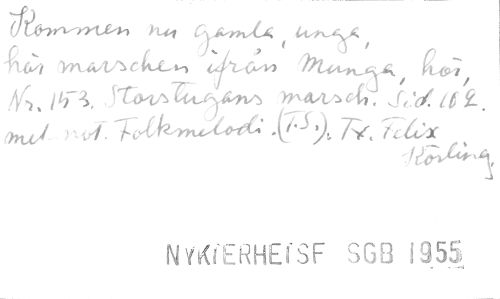 Kommen nu gamla, unga,
hör marschen ifrån Munga, hör,
Nr. 153. Storstugans marsch. Sid. 162.
mel. not. Folkmelodi. (T.S.). Tx. Felix
Körling.
NYKTERHETSF SGB 1955